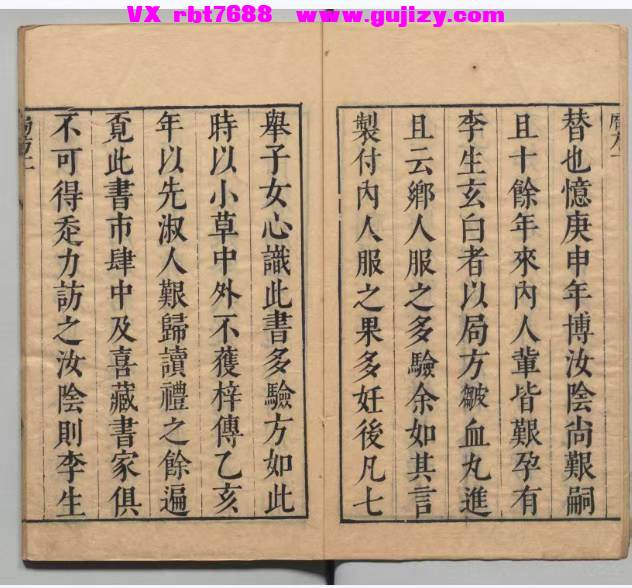 VX rbt7688 www.gujizy.com
替也憶庚申年博汝陰尚艱嗣
且十餘年來內人輩皆艱孕有
李生玄白者以局方皺血丸進
且云鄉人服之多驗余如其言
製付內人服之果多妊後凡七
舉子女心識此書多驗方如此
時以小草中外不獲梓傳乙亥
年以先淑人艱歸讀禮之餘遍
覓此書市肆中及喜藏書家俱
不可得乃力訪之汝陰則李生